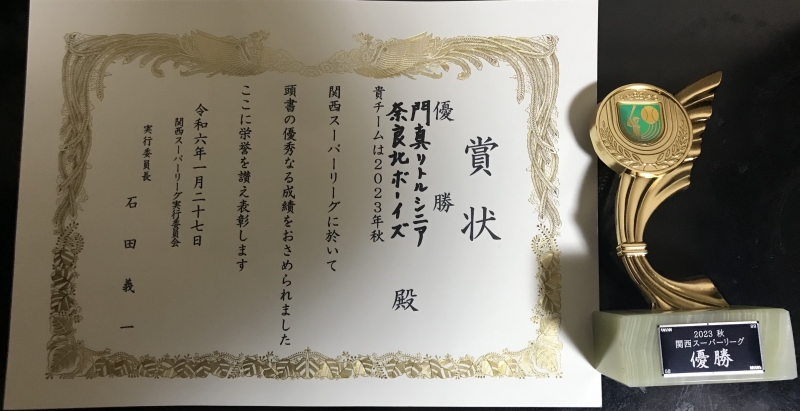 賞状
優勝
門真リトルシニア
奈良北ボーイズ
殿
貴チームは2023年秋
関西スーパーリーグに於いて
頭書の優秀なる成績をおさめられました
ここに栄誉を讃え表彰します
令和六年一月二十七日
関西スーパーリーグ実行委員会
実行委員長 石田義一
2023 秋
関西スーパーリーグ
優勝